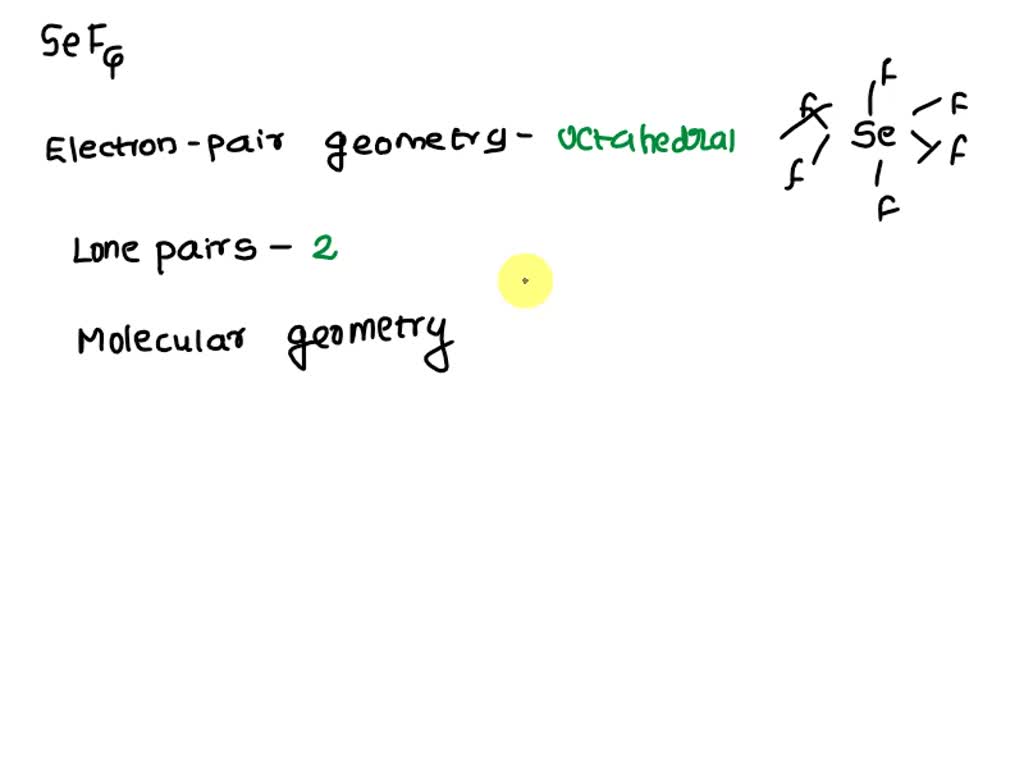 SeF6
Electron-pair geometry- octahedral
Lone pairs - 2
Molecular geometry
F
F F
Se
F F
F